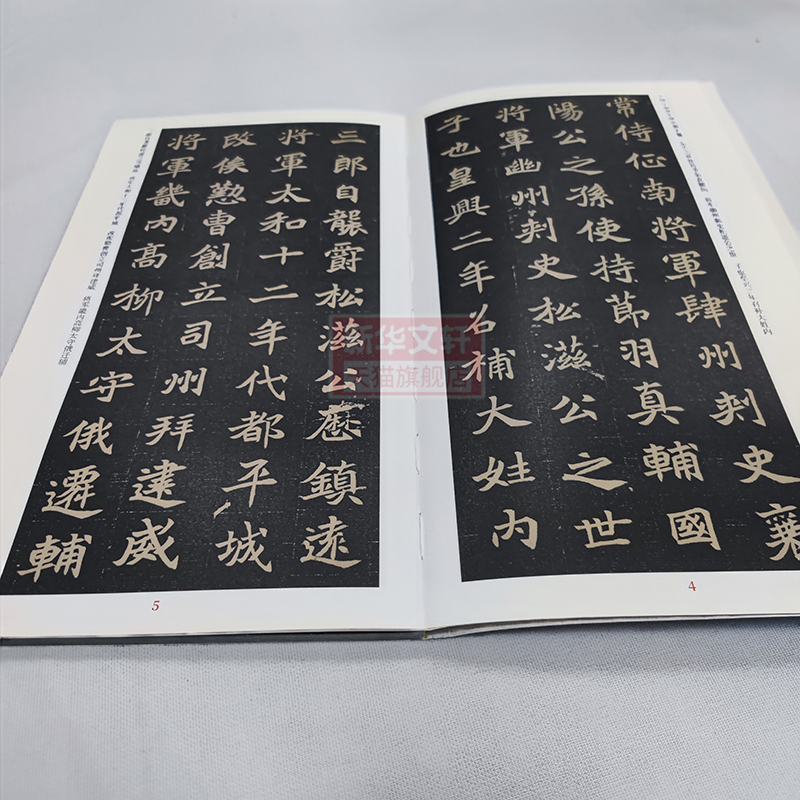 常侍征南將軍肆州刾史襄
陽公之孫使持莭羽真輔國
將軍幽州刾史松滋公之世
子也皇興二年召補大姓内
4
三郎自襲爵松滋公歷鎮遠
將軍太和十二年代都平城
改俟懃曹創立司州拜建威
將軍畿内高柳太守俄遷輔
5
新华文轩
天猫旗舰店